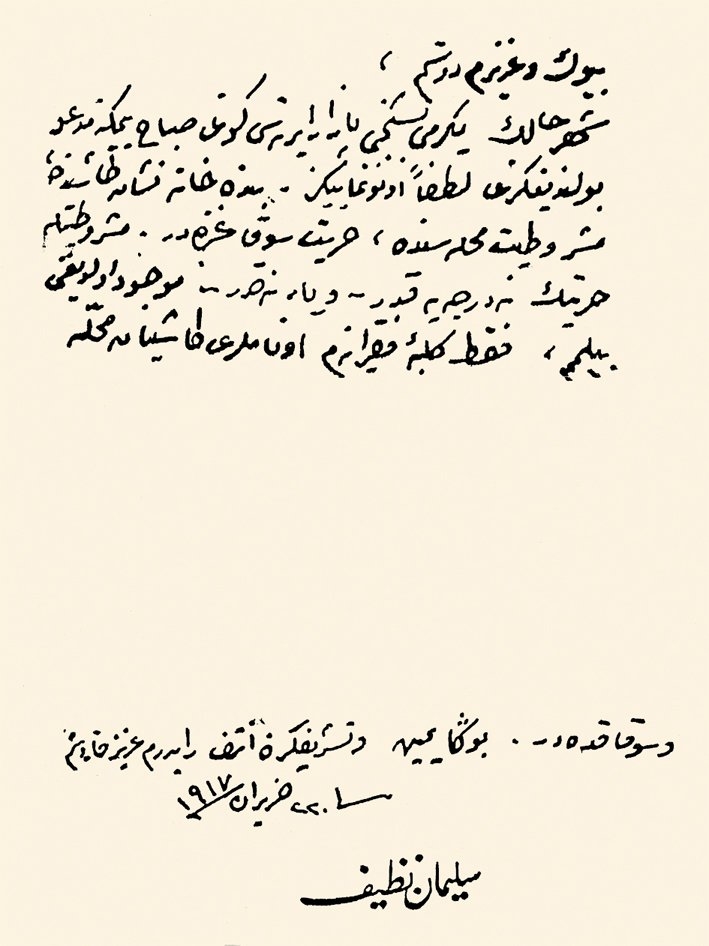 بیوك و عزیزم دوستم ،
شهر حالك یكرمی بشنجی پازار ایرتسی كونی صباح یمكنه مدعو
بولندیغكزی لطفاً اونوتماییكز . بنده خانه نشانه طاشنده
مشروطیت محله سنده ، حریت سوقاغنده در . مشروطیتله
حریتك نه درجه یه قدر و یا نه قدر موجود اولدیغنی
بیلمم ، فقط كلبۀ فقیرانه م اونلری طاشییان محله
و سوقاقده در . بوكا یمین و تشریفكزه انتظار ایدرم عزیز
٢٢ حزیران ١٩١٧
سلیمان نظیف